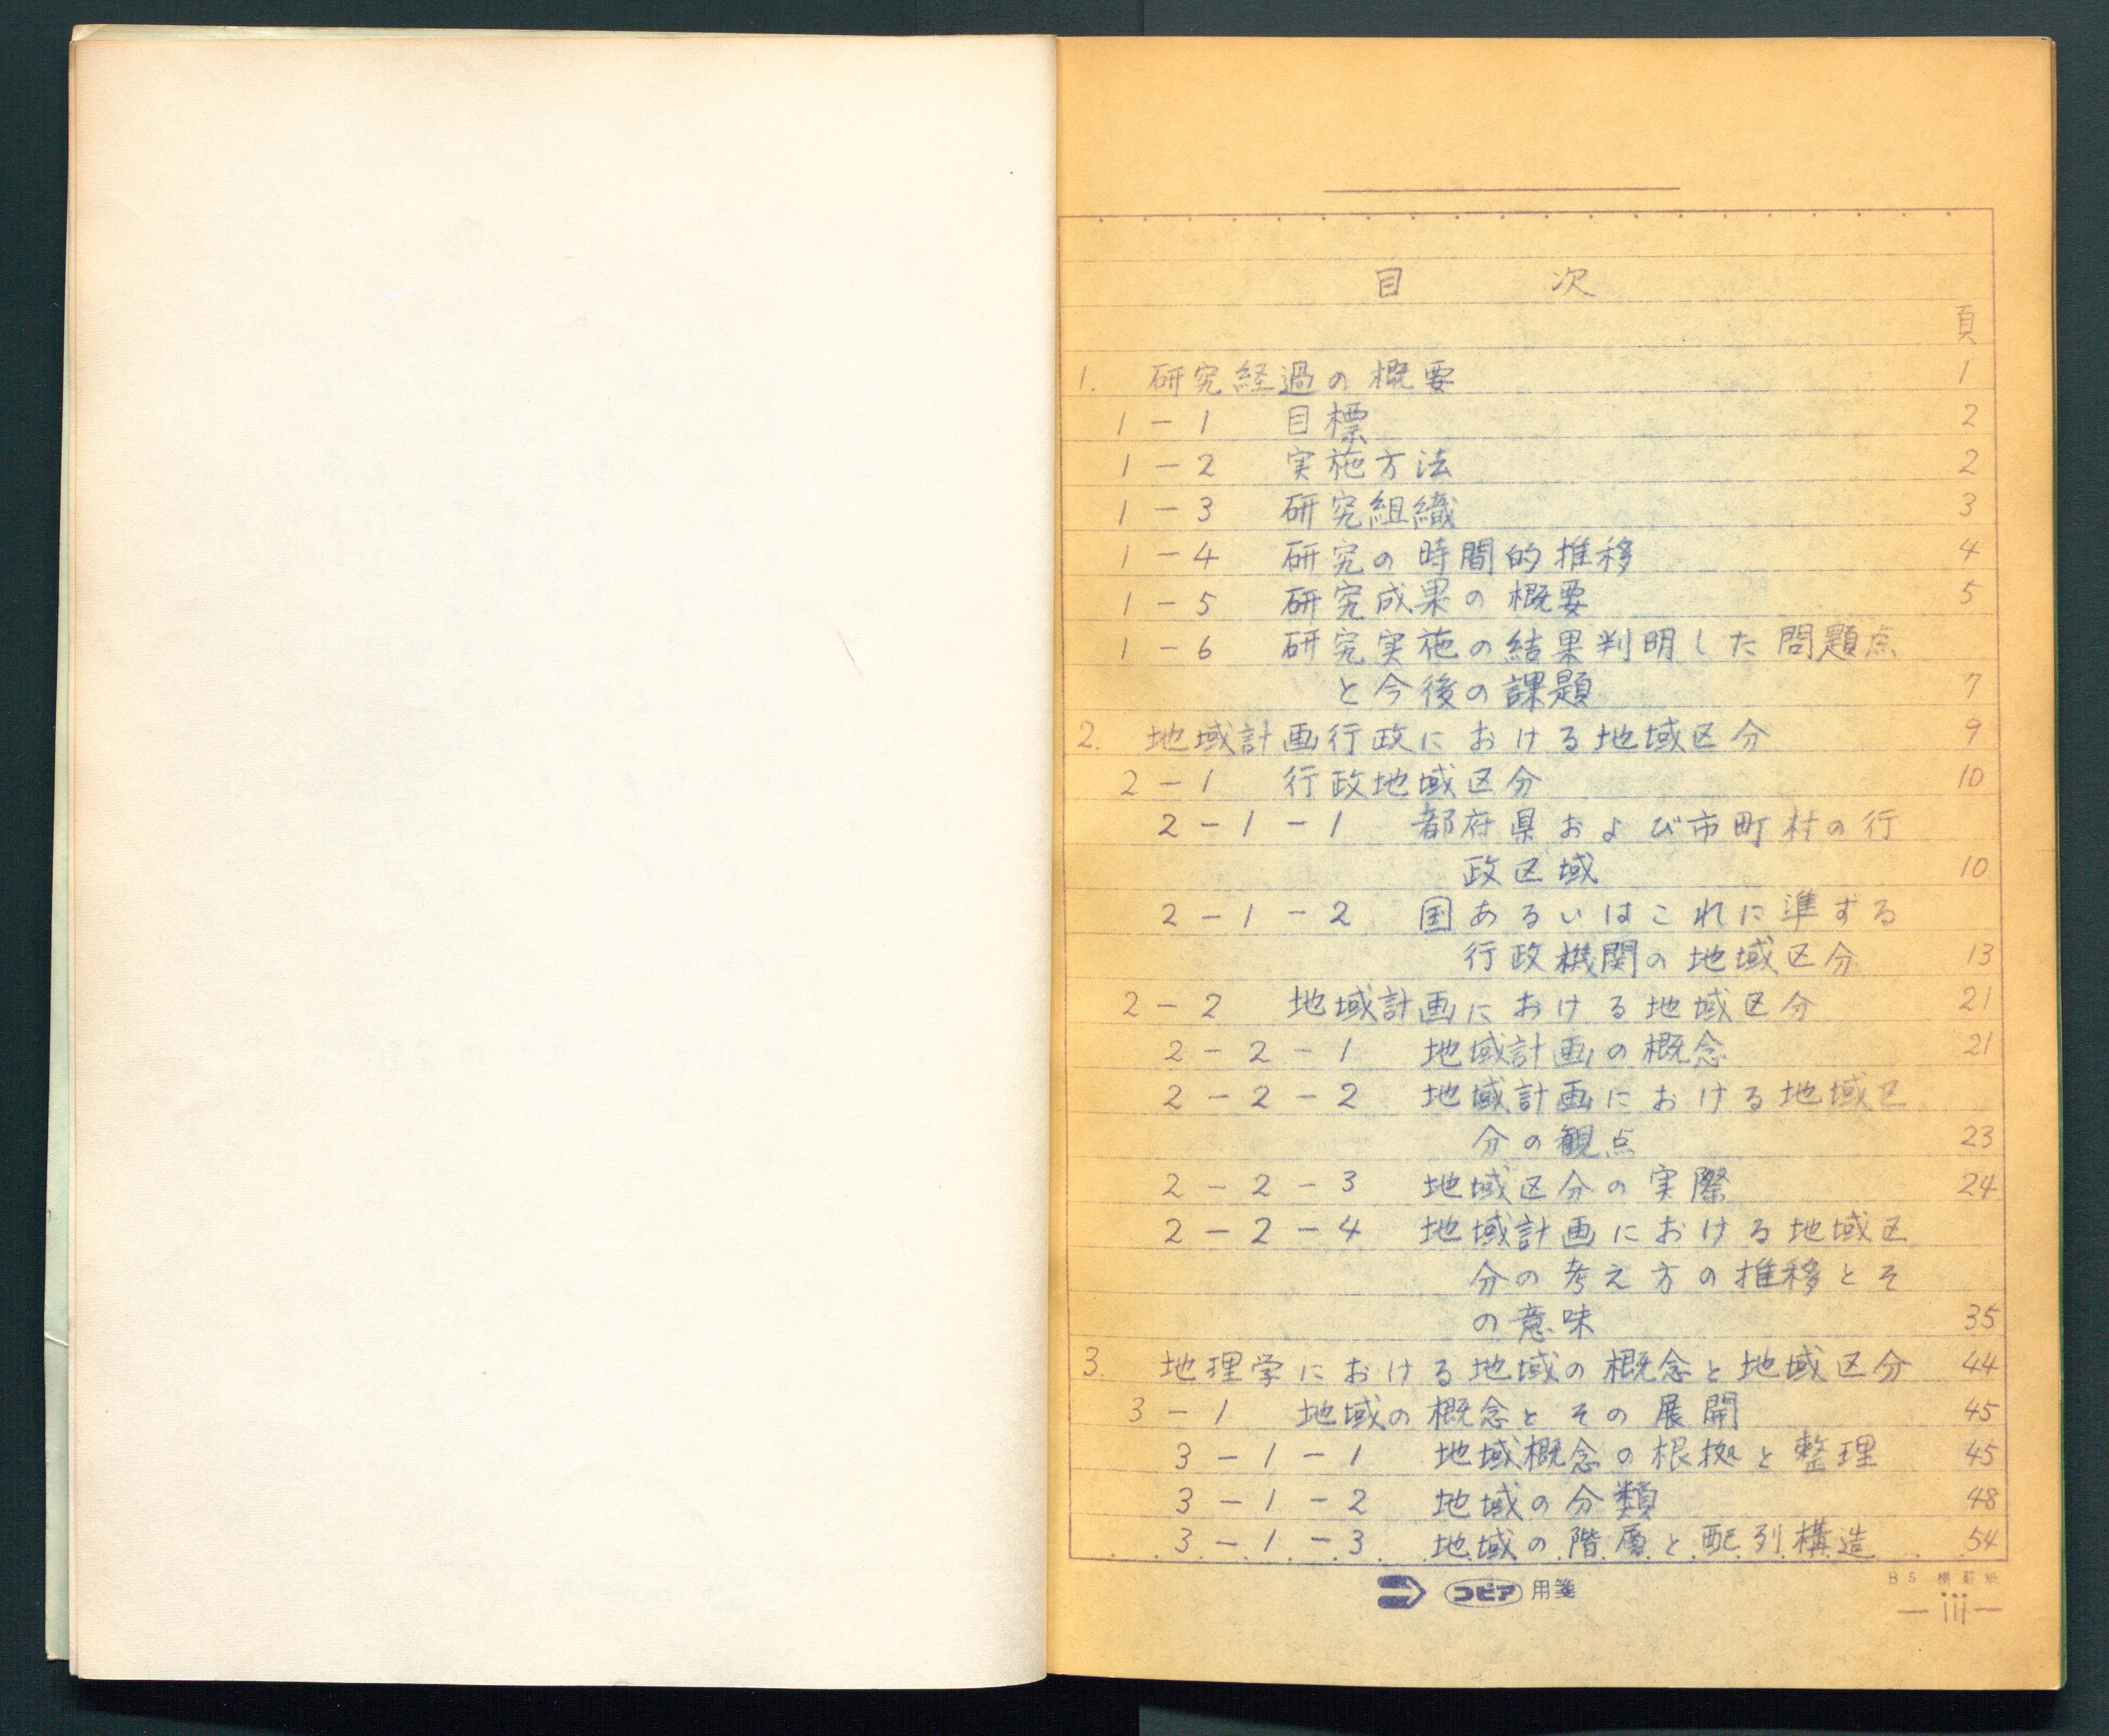 目 次
頁
1. 研究経過の概要 1
1-1 目標 2
1-2 実施方法 2
1-3 研究組織 3
1-4 研究の時間的推移 4
1-5 研究成果の概要 5
1-6 研究実施の結果判明した問題点
と今後の課題 7
2. 地域計画行政における地域区分 9
2-1 行政地域区分 10
2-1-1 都府県および市町村の行
政区域 10
2-1-2 国あるいはこれに準ずる
行政機関の地域区分 13
2-2 地域計画における地域区分 21
2-2-1 地域計画の概念 21
2-2-2 地域計画における地域区
分の観点 23
2-2-3 地域区分の実際 24
2-2-4 地域計画における地域区
分の考え方の推移とそ
の意味 35
3. 地理学における地域の概念と地域区分 44
3-1 地域の概念とその展開 45
3-1-1 地域概念の根拠と整理 45
3-1-2 地域の分類 48
3-1-3 地域の階層と配列構造 54
コピア 用箋
B5
— iii —